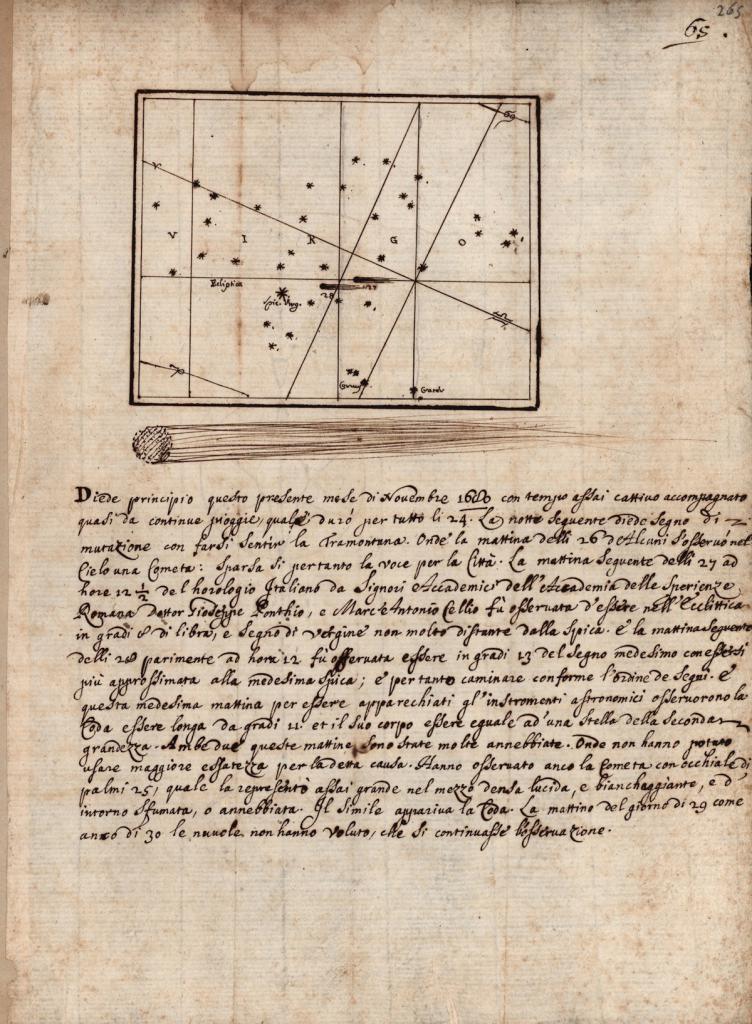 265
65.
V I R G O
Ecliptica
28 27
Spic. Virg.
Diede principio questo presente mese di Novembre 1680 con tempo assai cattivo accompagnato
quasi da continue pioggie, quale durò per tutto li 24. La notte seguente diede segno di
mutazione con farsi sentir la Tramontana. Onde la mattina delli 26 da Alcuni s'osservò nel
Cielo una Cometa: sparsa si per tanto la voce per la Città. La mattina seguente delli 27 ad
hore 12 1/2 del horologio Italiano da Signori Accademici dell'Accademia delle Sperienze
Romana Dattor Gioseppe Ponthio, e Marc'Antonio Cellio fù osservata d'essere nell'Ecclittica
in gradi 8 di libra, e segno di vergine non molto distante dalla spica. E la mattina seguente
delli 28 parimente ad hora 12 fù osservata essere in gradi 13 del segno medesimo con essersi
più approssimata alla medesima spica; e per tanto caminare conforme l'ordine de segni. E
questa medesima mattina per essere apparechiati gl'instromenti astronomici osservorono la
Coda essere longa da gradi 11. et il suo corpo essere eguale ad una stella della seconda
grandezza. Ambedue queste mattine sono state molte annebbiate. Onde non hanno potuto
usare maggiore essatezza per la detta causa. Hanno osservato anco la Cometa con occhiale di
palmi 25, quale la representò assai grande nel mezzo densa lucida, e biancheggiante, e d'
intorno sfumata, o annebbiata. Il simile appariva la Coda. La mattino del giorno di 29 come
anco di 30 le nuvole non hanno voluto, che si continuasse l'osservazione.